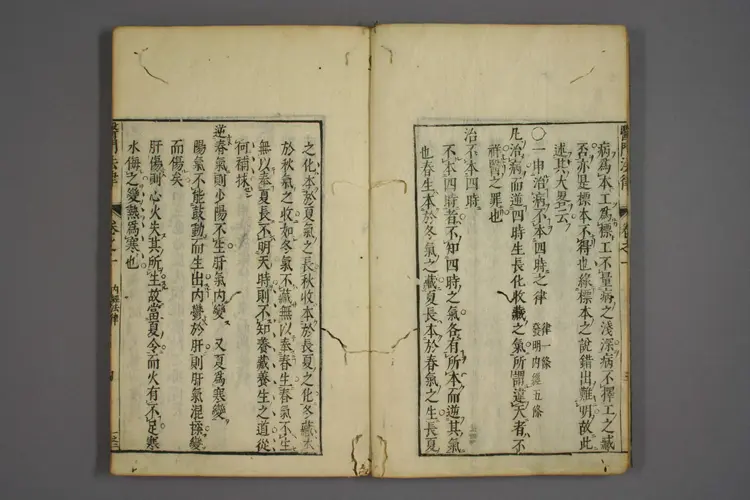 病爲本工爲標工不量病之淺深病不擇工之臧
否亦是標本不得也緣標本之說錯出難明故此
述其大畧云
〇一申治病不本四時之律
律一條
發明內經五條
凡治病而逆四時生長化收藏之氣所謂違天者不
祥醫之罪也
治不本四時
不本四時者不知四時之氣各有所本而逆其氣
也春生本於冬氣之藏夏長本於春氣之生長夏
之化本於夏氣之長秋收本於長夏之化冬藏本
於秋氣之收如冬氣不藏無以奉春生春氣不生
無以奉夏長不明天時則不知養藏養生之道從
何補救
逆春氣則少陽不生肝氣內變 又夏爲寒變
陽氣不能鼓動而生出內鬱於肝則肝氣混揉變
而傷矣
肝傷則心火失其所生故當夏令而火有不足寒
水侮之變熱爲寒也
醫門法律
卷之一
內經法律